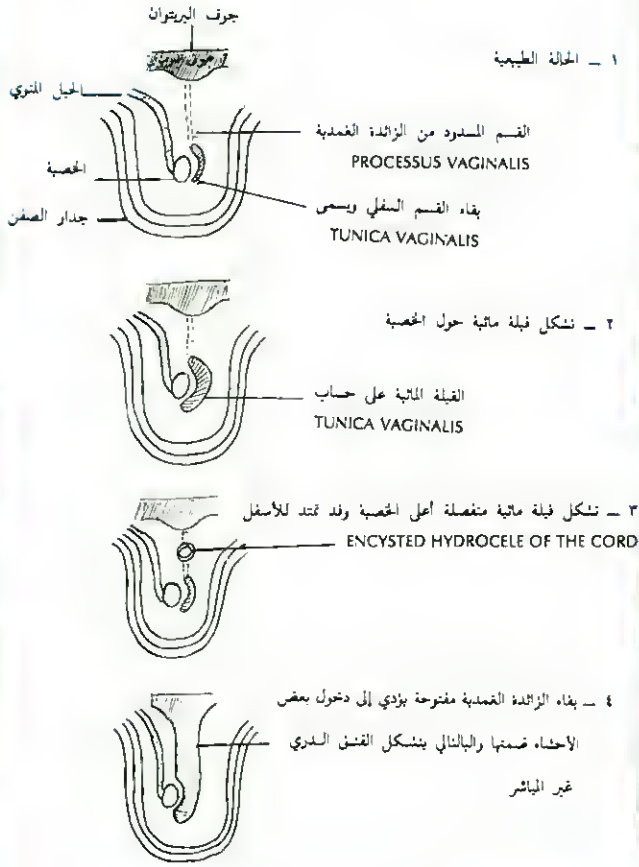 جوف البريتوان
١ ــ الحالة الطبيعية
الحبل المنوي
القسم المسدود من الزائدة الغمدية
PROCESSUS VAGINALIS
الخصية
بقاء القسم السفلي ويسمى
جدار الصفن
TUNICA VAGINALIS
٢ ــ تشكل قيلة مائية حول الخصية
القيلة المائية على حساب
TUNICA VAGINALIS
٣ ــ تشكل قيلة مائية منفصلة أعلى الخصية وقد تمتد للأسفل
ENCYSTED HYDROCELE OF THE CORD
٤ ــ بقاء الزائدة الغمدية مفتوحة يؤدي إلى دخول بعض
الأحشاء ضمنها وبالتالي يتشكل الفتق السري
غير المباشر